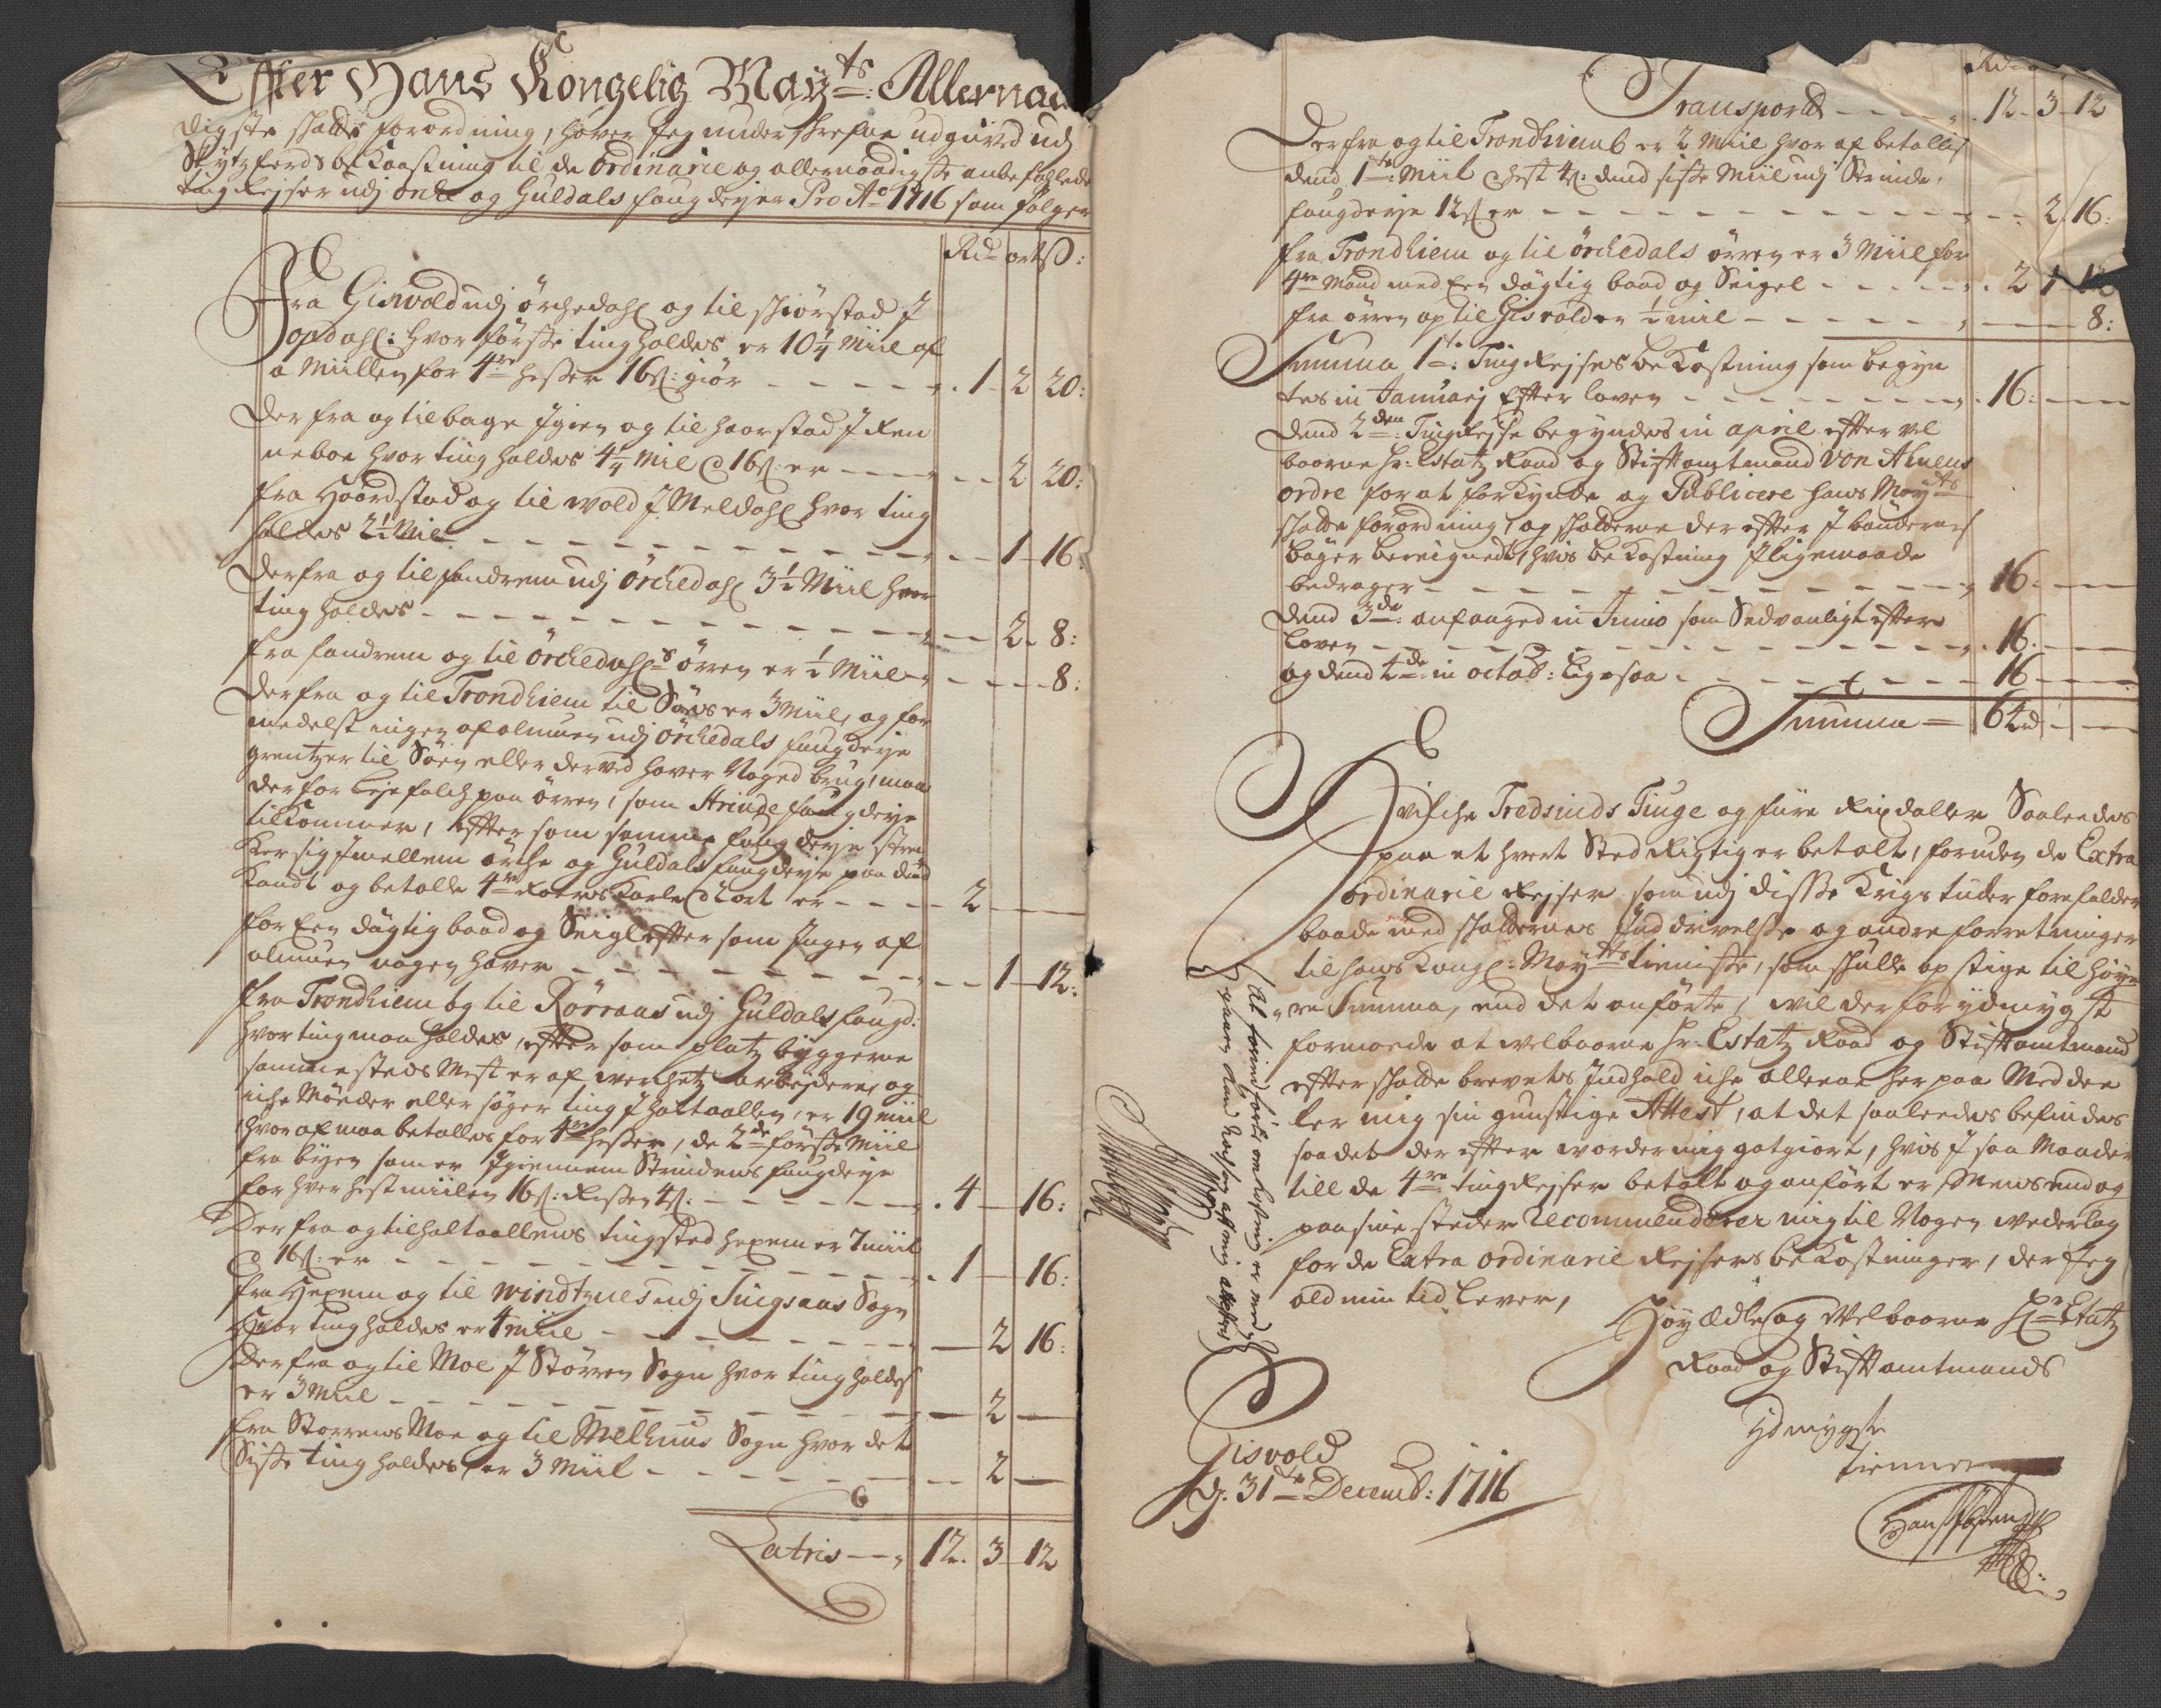 Effter Hans Kongelig May:ts Allernaa
digste skatte forordning, haver jeg underskrefne udgived udj
Skytzferds bekaastning til de ordinarie og allernaadigste anbefallede
tingRejser udj Orke og Guldals fougderjer Pro Ao 1716 som følger
Rd ort ß:
Fra Gisvold udj Örchedahl og til skiørstad J
opdahl: hvor første ting holdes er 10 1/4 Miil af
a Miillen for 4re hester 16 ß: giör - 1 - 2 20:
der fra og tilbage Jgien og til haarstad J Ren
neboe hvor ting holdes 4 1/4 Mil @ 16 ß: er - 2 20:
fra Haardstad og til Wold J Meldahl hvor ting
holdes 2 1/2 Mil - 1 - 16:
derfra og til fandrem udj Örchedahl 3 1/2 Miil hvor
ting holdes - 2 - 8:
fra fandrem og til Örchedahls örren er 1/2 Miil - 8:
derfra og til Trondhiem til Söes er 3 Miil, og for
medelst ingen af almuen udj Örchedals fougderje
grentzer til Söen eller derved haver Noged brug, maa
derfor Leje folch paa örren, som Strinde fougderje
tilkommer, efftersom samme fougderje strec
ker sig Jmellem örche og Guldals fougderje paa den
Kandt og betalle 4re Roers Karle @ 2 ort er - 2
for Een dögtig baad og Seigl efftersom Jngen af
almuen nogen haver - 1 - 12:
fra Trondhiem og til Rörraas udj Guldals fougd:
hvor ting maa holdes, efftersom platz byggerne
sammesteds Mest er af werchetz arbejdere, og
iche Möeder eller söger ting J holtaallen, er 19 miil
hvoraf maa betalles for 4re hester, de 2de første Miil
fra byen som er Jgiennem Strindens fougderje
for hver hest miilen 16 ß: Resten 4 ß: - 4 - 16:
Der fra og til holtaallens tingsted hexem er 7 miil
@ 16 ß: er - 1 - 16:
fra Hexem og til windtznes udj Singsaas Sogn
Hvor ting holdes er 4 miil - 2 16:
Derfra og til Moe J Störren Sogn hvor ting holdes
er 3 Miil - 2 -
fra Storrens Moe og til Melhuus Sogn hvor det
Siste ting holdes, er 3 Miil - 2 -
Latris - 12. 3 - 12
Rd
Transport - 12 - 3 - 12
Derfra og til Trondhiemb er 2 Miil hvor af betallis
dend 1te: Miil @ hest 4 ß: dend siste Miil udj Strinde
fougderje 12 ß er - 2 16:
fra Trondhiem og til örchedals örren er 3 Miil for
4re Mand med Een dögtig baad og Seigel - 2 1 12
fra örren op til Gisvold er 1/2 miil - 8:
Summa 1te: TingRejses bekostning som begyn
tes in Januarj Effter loven - 16:
dend 2den: TingRejse begyndes in april effter vel
baarne hr: Estatz Raad og Stifftamtmand Von Ahnens
ordre for at forkynde og Publicere hans Mayts
skatte forordning, og skatterne der effter J bönderness
böger bereignedt, hvis bekostning Jligemaade
bedrager - 16:
dend 3de: anfanged in Junio som Sedvanligt effter
Loven - 16.
og dend 4de: in octob: ligesaa - 16
Summa = 64 rd
Hvilche Tredsinds Tiuge og fiire Rixdaller Saaleedes
paa et hvert Sted Rigtig er betalt, foruden de Extra
ordinarie Rejser som udj disse Krigs tider forefalder
baade med skatternes Jnddrivelse og andre forretninger
til hans Kongl: Mayts tienniste, som skulle opstige til höye
re Summa, end det anförte, wil derfor ydmygst
formoede at welbaarne hr: Estatz Raad og Stifftamtmand
effter skatte brevets Jndhold iche allene her paa Meddee
ler mig sin gunstige Attest, at det saaleedes befindes
saa det der effter worder mig gotgiort, hvis J saa Maader
till de 4re tingRejser betalt og anfört er, Mens end og
paa sine steder Recommenderer mig til Nogen wederlag
for de Extra ordinarie Rejsers bekostninger, der jeg
ald min tid lever,
Höyædle og Velbaarne Hr Etatz
Raad og Stifftamtmands
Ydmygste
tienner
Gisvold
d. 31te Decemb: 1716